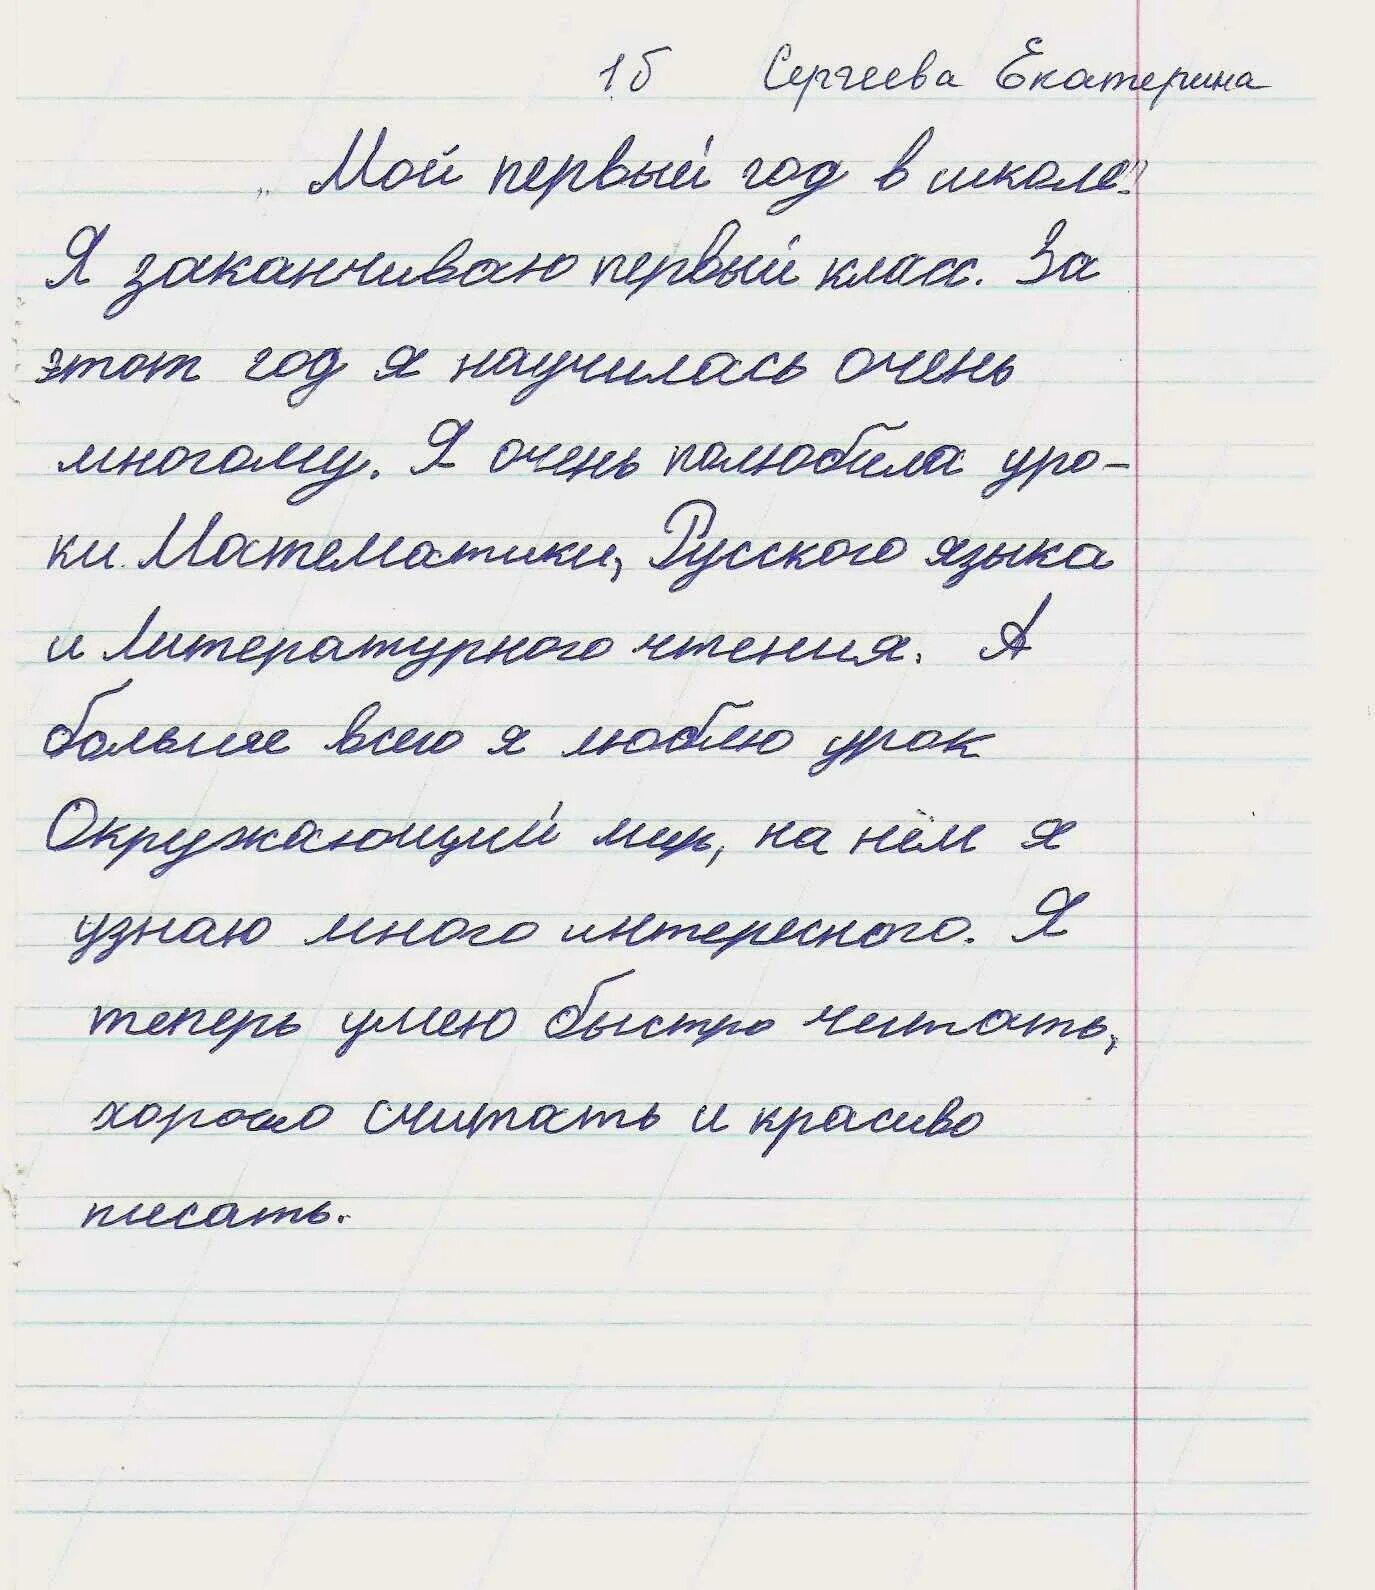 1б Сергеева Екатерина
„Мой первый год в школе."
Я заканчиваю первый класс. За
этот год я научилась очень
многому. Я очень полюбила уро-
ки Математики, Русского языка
и Литературного чтения. А
больше всего я люблю урок
Окружающий мир, на нём я
узнаю много интересного. Я
теперь умею быстро читать,
хорошо считать и красиво
писать.